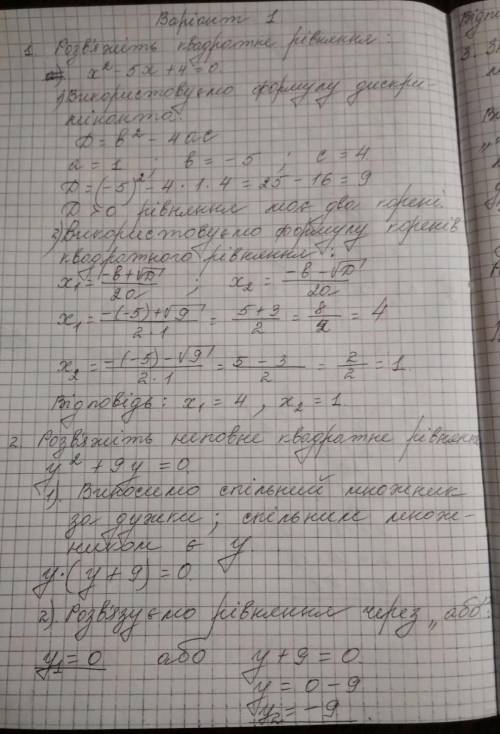 Варіант 1
1. Розв'яжіть квадратне рівняння:
x² - 5x + 4 = 0.
1) Використовуємо формулу дискри-
мінанта:
D = b² - 4ac
a = 1 ; b = -5 ; c = 4.
D = (-5)² - 4 · 1 · 4 = 25 - 16 = 9
D > 0 рівняння має два корені.
2) Використовуємо формулу коренів
квадратного рівняння:
x₁ = (-b + √D)/2a ; x₂ = (-b - √D)/2a
x₁ = (-(-5) + √9)/(2 · 1) = (5 + 3)/2 = 8/2 = 4
x₂ = (-(-5) - √9)/(2 · 1) = (5 - 3)/2 = 2/2 = 1.
Відповідь: x₁ = 4 , x₂ = 1.
2. Розв'яжіть неповне квадратне рівнян
y² + 9y = 0.
1). Виносимо спільний множник
за дужки; спільним множ-
ником є y.
y · (y + 9) = 0.
2). Розв'язуємо рівняння через „або".
y₁ = 0 або y + 9 = 0.
y = 0 - 9
y₂ = -9
Відпо
3.